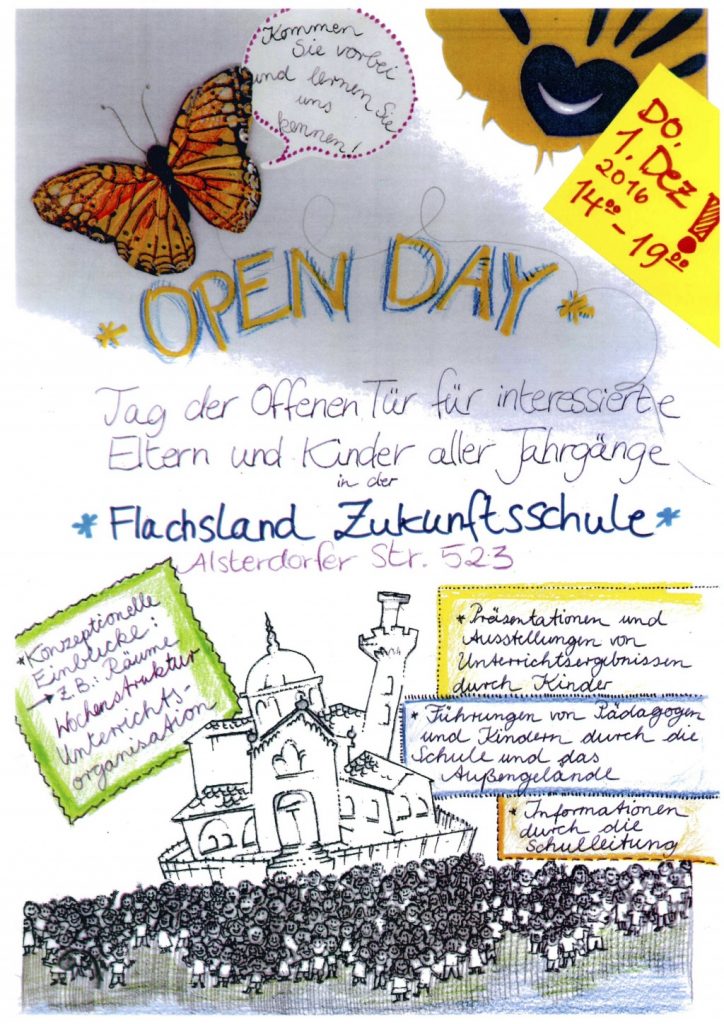 Kommen
Sie vorbei
und lernen Sie
uns
kennen!
DO,
1. Dez
2016
14⁰⁰ - 19⁰⁰
!
* OPEN DAY *
Tag der Offenen Tür für interessierte
Eltern und Kinder aller Jahrgänge
in der
* Flachsland Zukunftsschule *
Alsterdorfer Str. 523
* Konzeptionelle
Einblicke:
→ z.B.: Räume
Wochenstruktur
Unterrichts-
organisation
* Präsentationen und
Ausstellungen von
Unterrichtsergebnissen
durch Kinder
* Führungen von Pädagogen
und Kindern durch die
Schule und das
Außengelände
* Informationen
durch die
Schulleitung